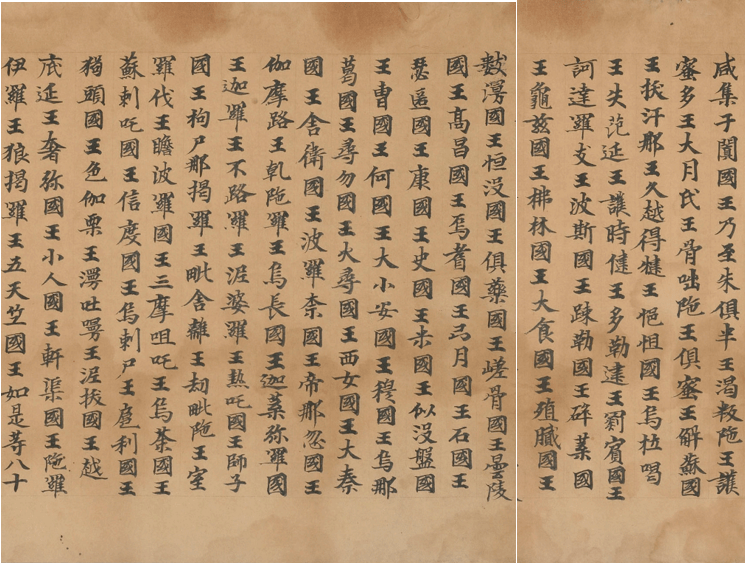 咸集于闐國王乃至朱俱半王渴叛陁王護
蜜多王大月氏王骨咄陁王俱蜜王解蘇國
王拔汗那王久越得犍王悒怛國王烏拉喝
王失范延王護時健王多勒建王罽賓國王
訶達羅支王波斯國王踈勒國王碎葉國
王龜茲國王拂林國王大食國王殖膩國王
數漫國王怛沒國王俱藥國王嵯骨國王曇陵
國王高昌國王焉耆國王弓月國王石國王
瑟匿國王康國王史國王米國王似沒盤國
王曹國王何國王大小安國王穆國王烏那
葛國王尋勿國王火尋國王西女國王大秦
國王舍衛國王波羅柰國王帝那忽國王
伽摩路王乹陁羅王烏長國王迦葉弥羅國
王迦羅王不路羅王泥婆羅王熱吒國王師子
國王拘尸那揭羅王毗舍離王劫毗陁王室
羅伐王瞻波羅國王三摩咀吒王烏荼國王
蘇剌吒國王信度國王烏剌尸王扈利國王
狗頭國王色伽栗王漫吐嘼王泥拔國王越
底延王奢弥國王小人國王軒渠國王陁羅
伊羅王狼揭羅王五天竺國王如是等八十